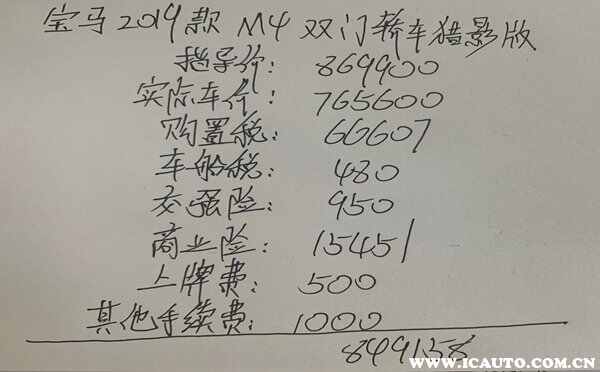 宝马2019款 M4 双门轿车猎影版
指导价: 869900
实际车价: 765600
购置税: 66607
车船税: 480
交强险: 950
商业险: 15451
上牌费: 500
其他手续费: 1000
849158
爱卡汽车
WWW.ICAUTO.COM.CN